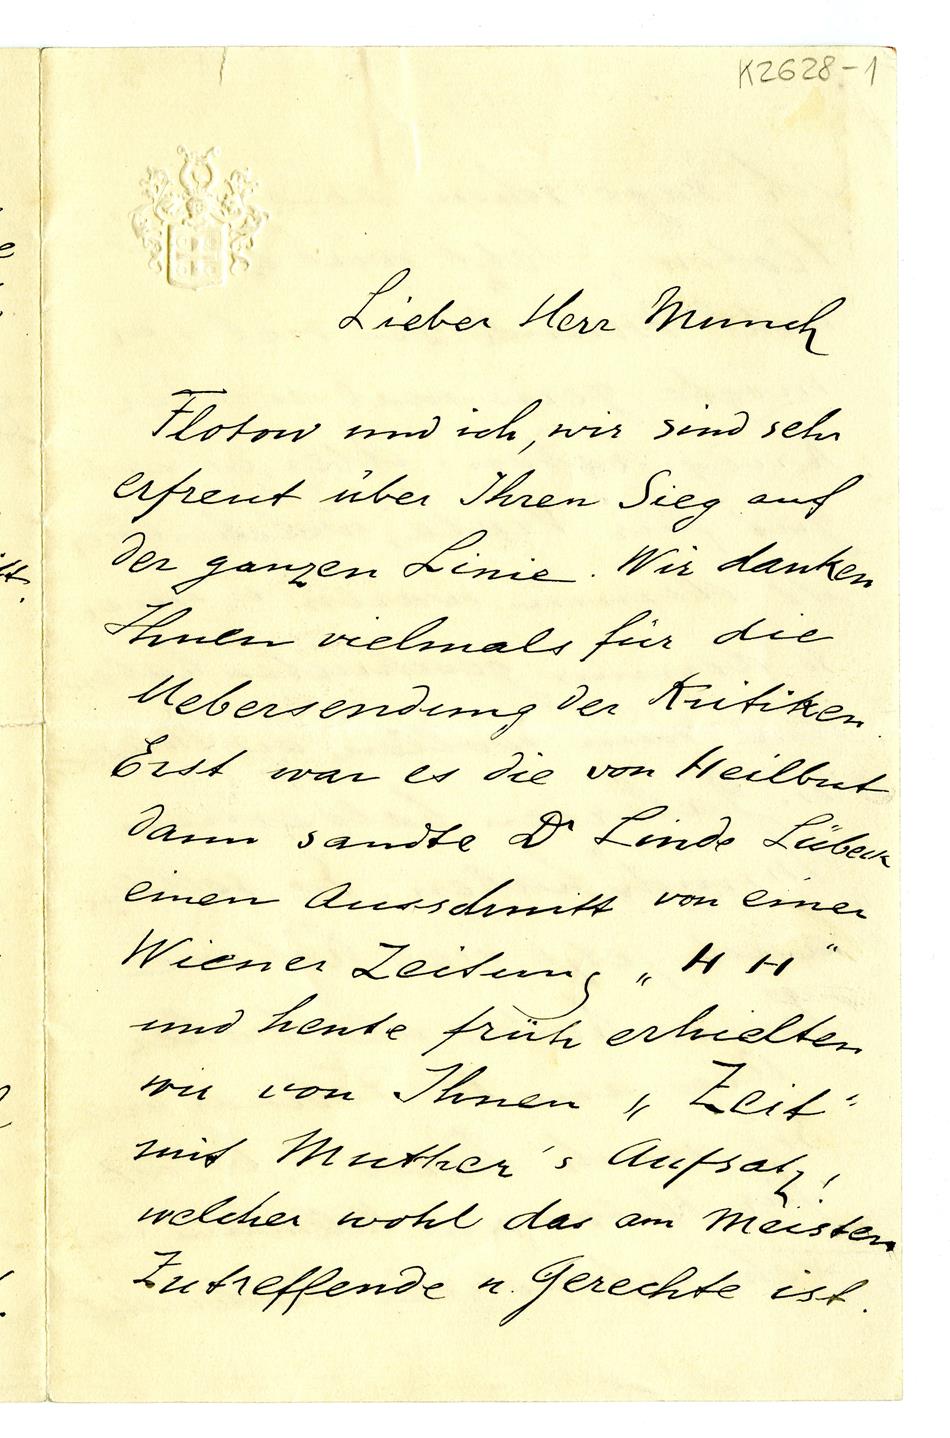 K2628-1
Lieber Herr Munch
Flotow und ich, wir sind sehr
erfreut über Ihren Sieg auf
der ganzen Linie. Wir danken
Ihnen vielmals für die
Uebersendung der Kritiken.
Erst war es die von Heilbut
dann sandte Dr Linde Lübeck
einen Ausschnitt von einer
Wiener Zeitung „H H"
und heute früh erhielten
wir von Ihnen „Zeit"
mit Muther's Aufsatz!
welcher wohl das am Meisten
Zutreffende u. Gerechte ist.